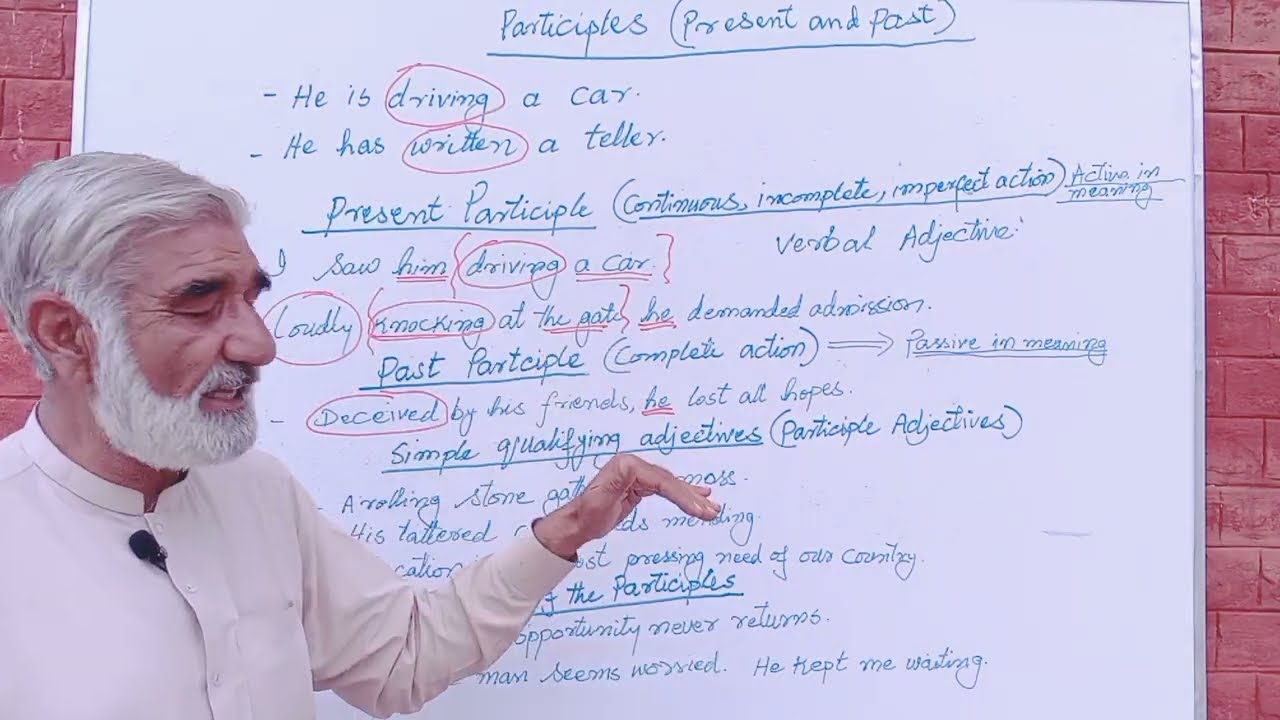 Participles (Present and Past)
- He is driving a car.
- He has written a teller.
Present Participle (Continuous, incomplete, imperfect action) Active in meaning
Verbal Adjective
I saw him driving a car.
Loudly knocking at the gate he demanded admission.
Past Partciple (Complete action) ⟹ Passive in meaning
- Deceived by his friends, he lost all hopes.
Simple qualifying adjectives (Participle Adjectives)
- A rolling stone moss.
His tattered mending.
pressing need of our country.
the Participles
opportunity never returns.
man seems worried. He kept me waiting.